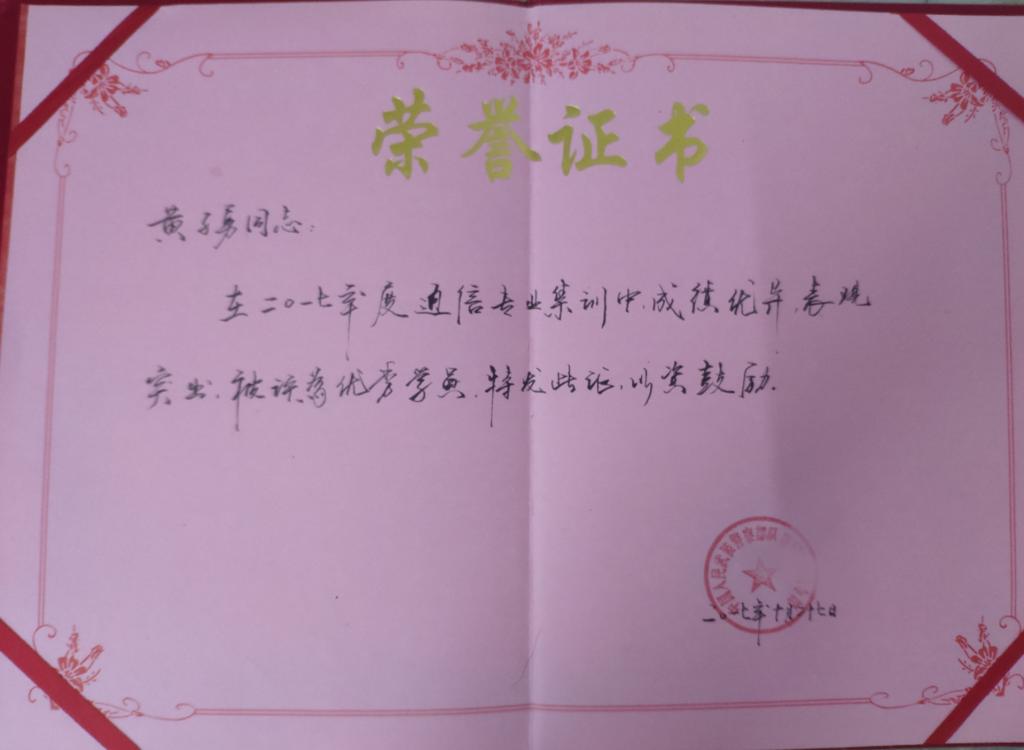 荣誉证书
黄子勇同志:
在二〇一七年度通信专业集训中,成绩优异,表现
突出,被评为优秀学员,特发此证,以资鼓励.
国人民武装警察部队
二〇一七年十月十七日